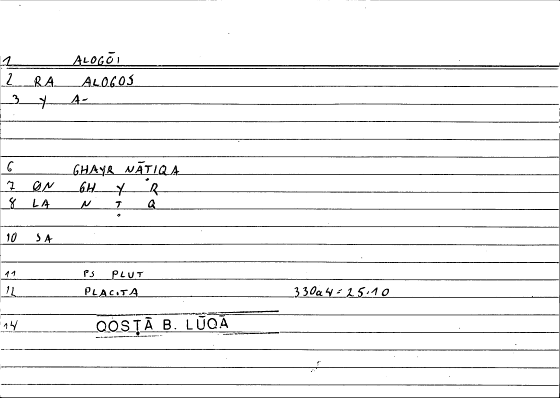 1 ALOGŌI
2 RA ALOGOS
3 Y A-
6 GHAYR NĀṬIQA
7 ØN GH Y R
8 LA N Ṭ Q
10 SA
11 PS PLUT
12 PLACITA 330a4 = 25.10
14 QOSṬĀ B. LŪQĀ